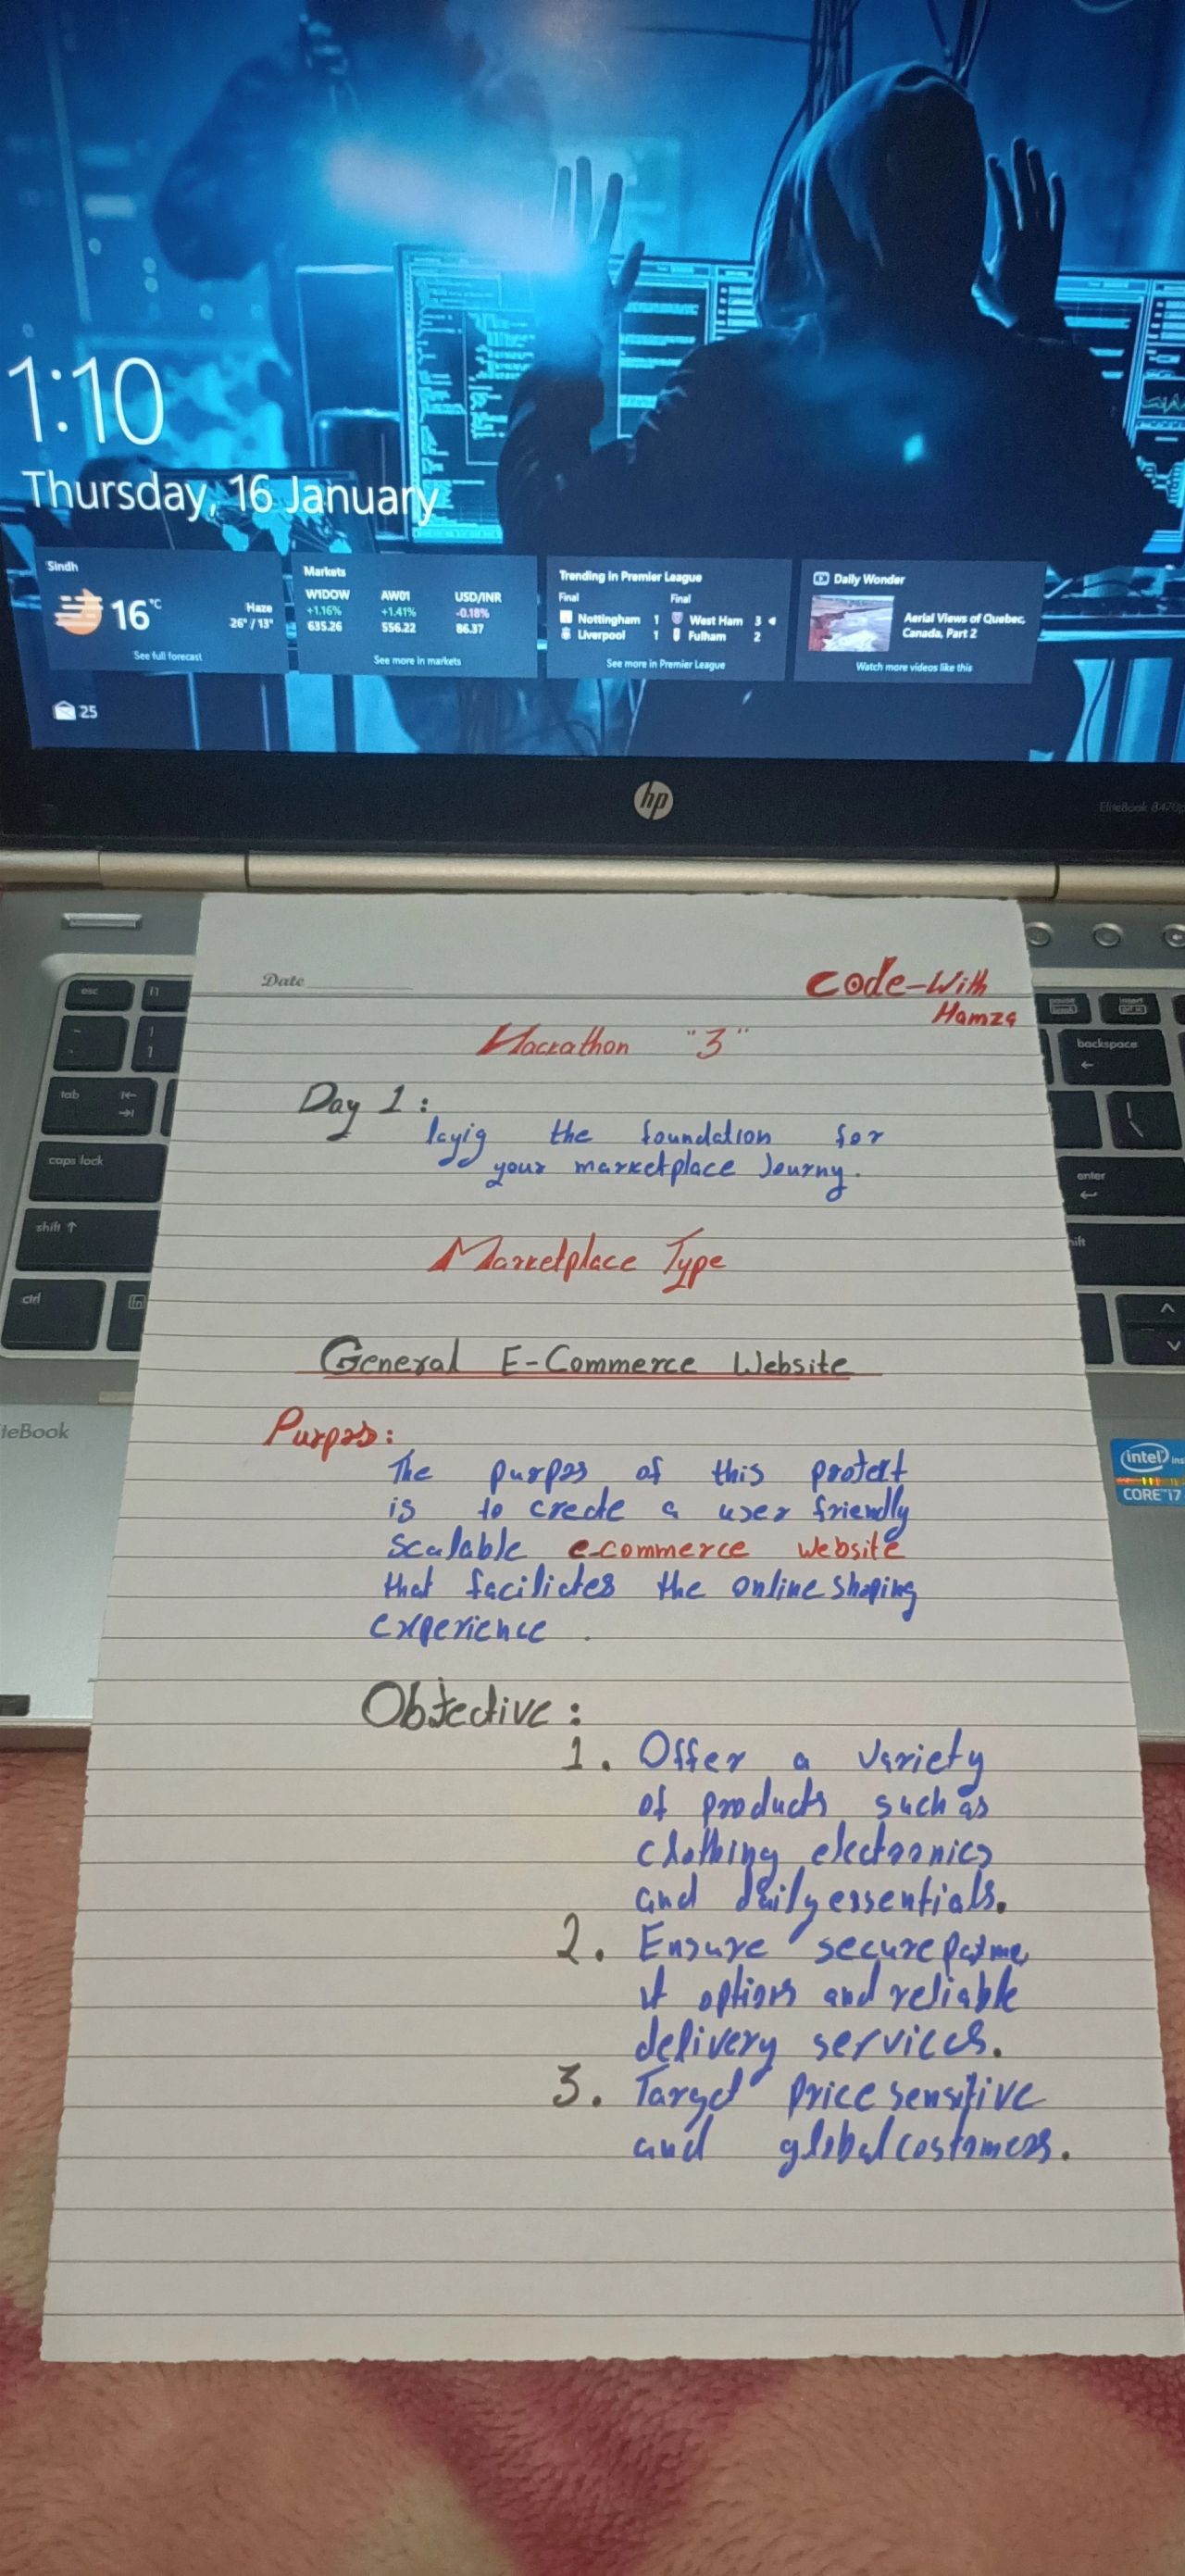 1:10
Thursday, 16 January
Sindh
16°C
Haze
26° / 13°
See full forecast
Markets
WIDOW AW01 USD/INR
+1.16% +1.41% -0.18%
635.26 556.22 86.37
See more in markets
Trending in Premier League
Final Final
Nottingham 1 West Ham 3
Liverpool 1 Fulham 2
See more in Premier League
Daily Wonder
Aerial Views of Quebec,
Canada, Part 2
Watch more videos like this
25
hp
EliteBook 8470p
esc f1
tab
caps lock
shift
ctrl fn
pause insert
backspace
enter
intel
CORE i7
Date
Code-With
Hamza
Hackathon "3"
Day 1:
layig the foundation for
your marketplace Journy.
Marketplace Type
General E-Commerce Website
Purpos:
The purpos of this protect
is to create a user friendly
scalable e-commerce website
that faciliates the online shoping
experience.
Objective:
1. Offer a variety
of products such as
clothing electronics
and daily essentials.
2. Ensure secure payme
nt options and reliable
delivery services.
3. Target price sensitive
and global costomers.